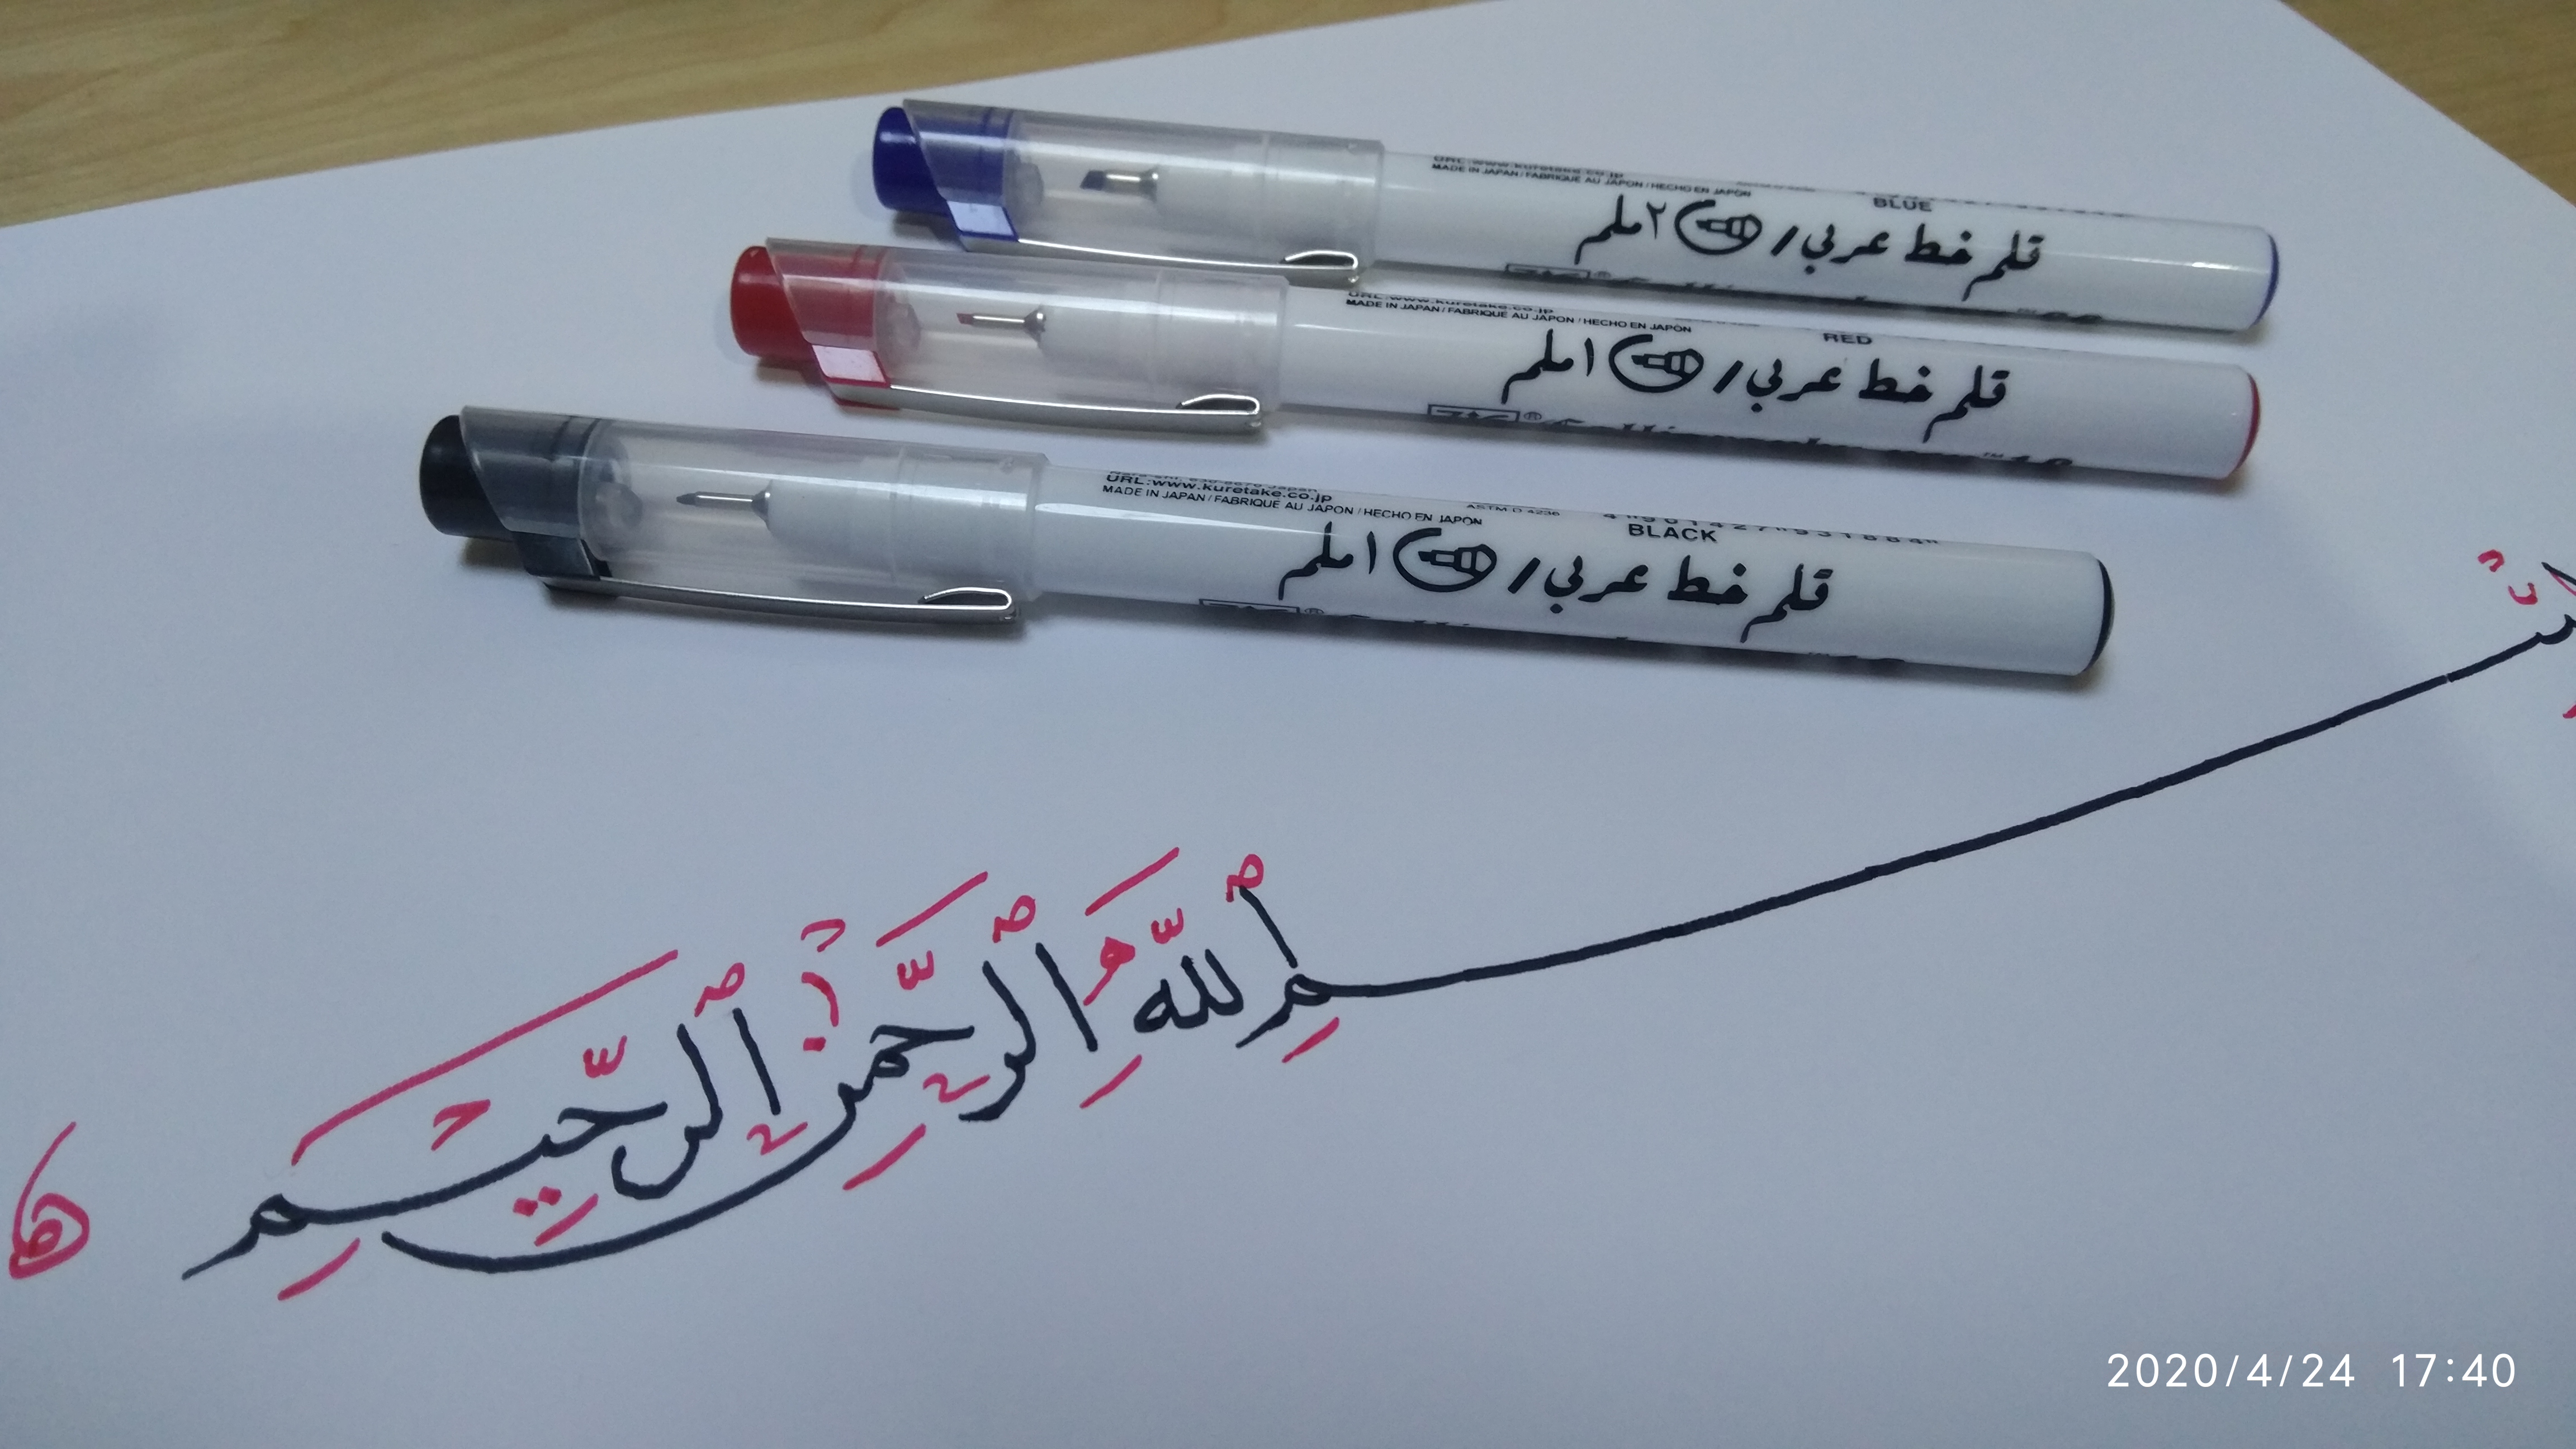 URL:www.kuretake.co.jp
MADE IN JAPAN / FABRIQUE AU JAPON / HECHO EN JAPÓN
BLUE
قلم خط عربي / ٢ ملم
URL:www.kuretake.co.jp
MADE IN JAPAN / FABRIQUE AU JAPON / HECHO EN JAPÓN
RED
قلم خط عربي / ١ ملم
URL:www.kuretake.co.jp
MADE IN JAPAN / FABRIQUE AU JAPON / HECHO EN JAPÓN
ASTM D 4236
BLACK
قلم خط عربي / ١ ملم
بِسْمِ ٱللَّهِ ٱلرَّحْمَٰنِ ٱلرَّحِيمِ
2020/4/24 17:40